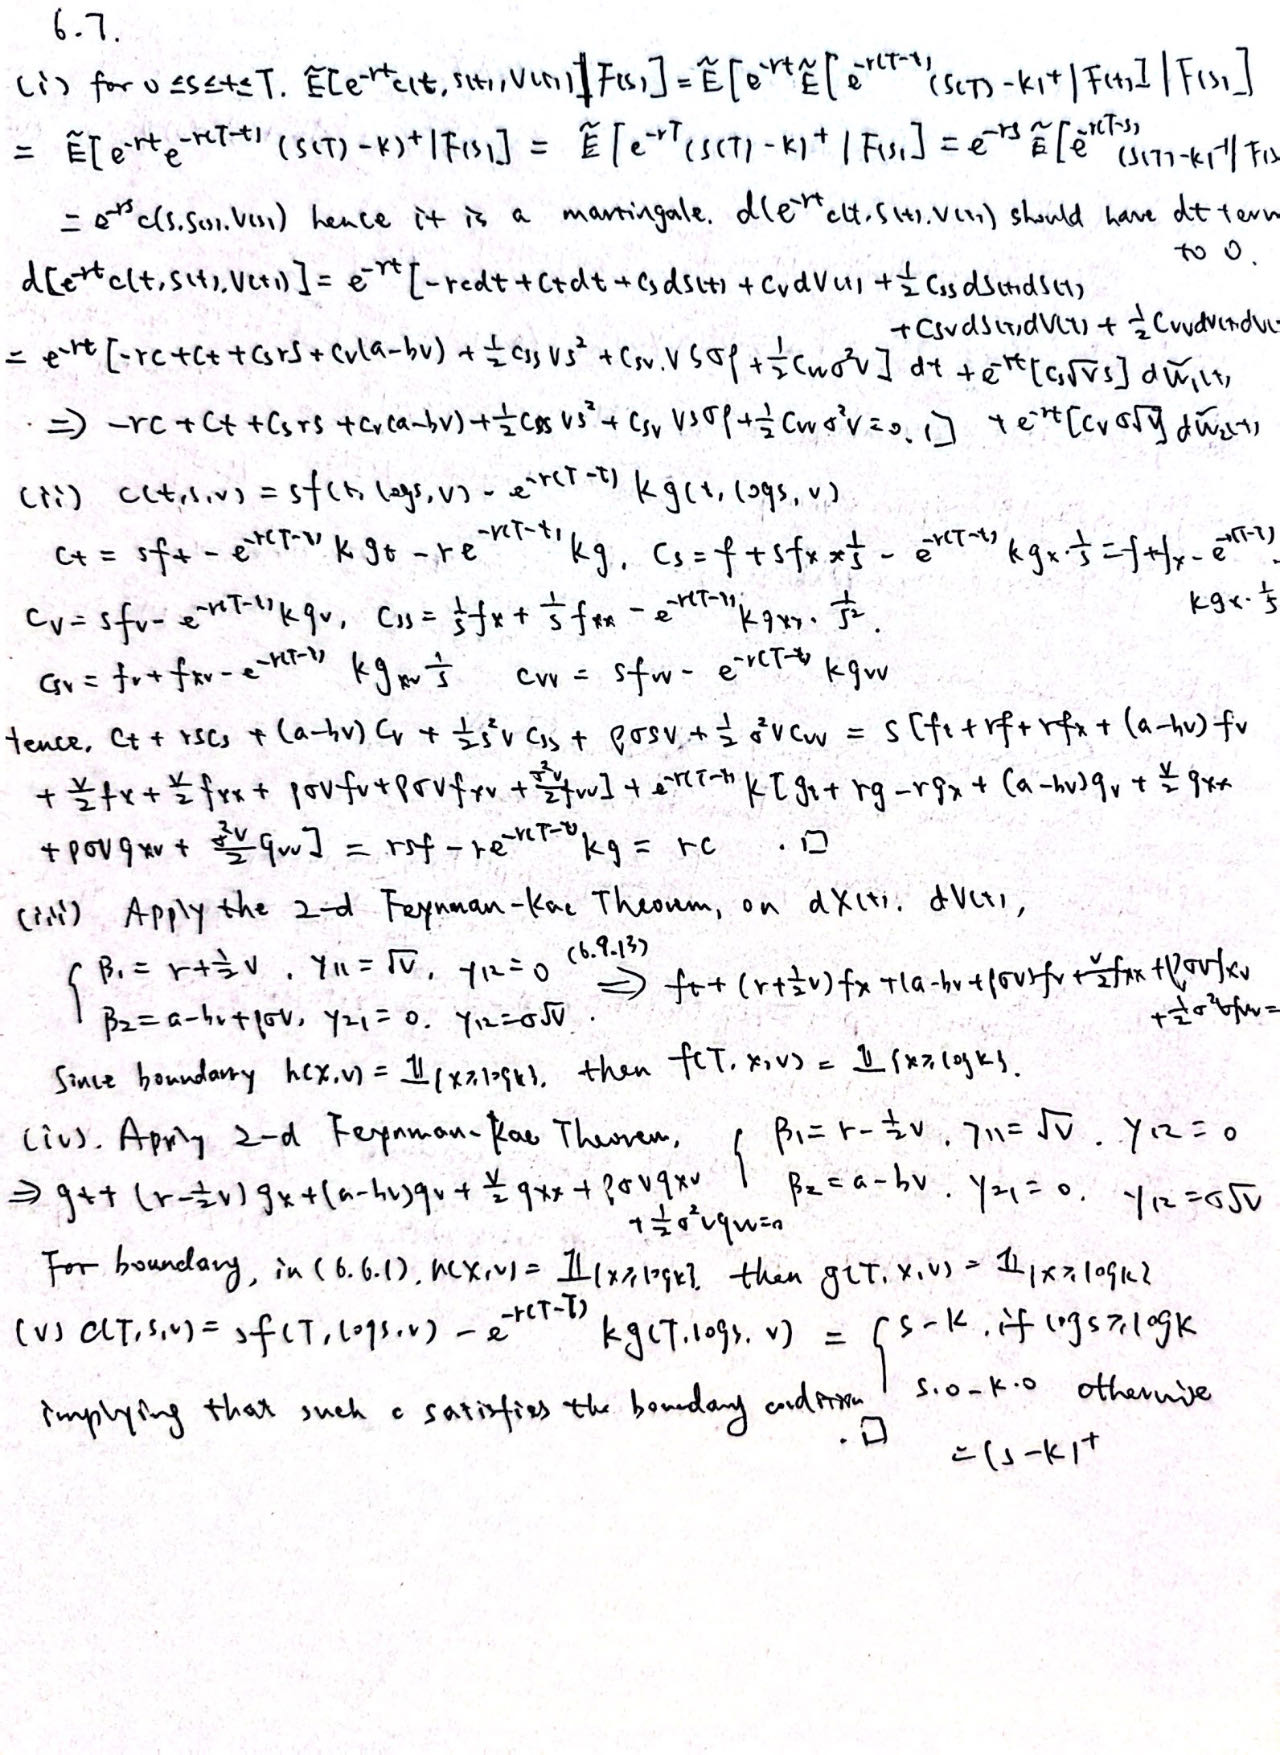 6.7.
(i) for 0≤s≤t≤T. Ẽ[e^{-rt}c(t,S(t),V(t))|F(s)] = Ẽ[e^{-rt}Ẽ[e^{-r(T-t)}(S(T)-K)^+|F(t)]|F(s)]
= Ẽ[e^{-rt}e^{-r(T-t)}(S(T)-K)^+|F(s)] = Ẽ[e^{-rT}(S(T)-K)^+|F(s)] = e^{-rs}Ẽ[e^{-r(T-s)}(S(T)-K)^+|F(s
= e^{-rs}c(s,S(s),V(s)) hence it is a martingale. d(e^{-rt}c(t,S(t),V(t)) should have dt term
to 0.
d[e^{-rt}c(t,S(t),V(t))] = e^{-rt}[-rcdt+c_tdt+c_sdS(t)+c_vdV(t)+½c_{ss}dS(t)dS(t)
+c_{sv}dS(t)dV(t)+½c_{vv}dV(t)dV(
= e^{-rt}[-rc+c_t+c_s rs+c_v(a-bv)+½c_{ss}vs²+c_{sv}.vsσρ+½c_{vv}σ²v]dt+e^{-rt}[c_s√v s]dW̃₁(t)
⇒ -rc+c_t+c_s rs+c_v(a-bv)+½c_{ss}vs²+c_{sv}vsσρ+½c_{vv}σ²v=0.□ +e^{-rt}[c_vσ√v]dW̃₂(t)
(ii) c(t,s,v) = sf(t,logs,v) - e^{-r(T-t)}Kg(t,logs,v)
c_t = sf_t - e^{-r(T-t)}Kg_t - re^{-r(T-t)}Kg, c_s = f+sf_x×1/s - e^{-r(T-t)}Kg_x·1/s = f+f_x - e^{-r(T-t)}
Kg_x·1/s
c_v = sf_v - e^{-r(T-t)}Kg_v, c_{ss} = 1/s f_x + 1/s f_{xx} - e^{-r(T-t)}Kg_{xx}·1/s².
c_{sv} = f_v+f_{xv} - e^{-r(T-t)}Kg_{xv}1/s c_{vv} = sf_{vv} - e^{-r(T-t)}Kg_{vv}
Hence, c_t+rsc_s+(a-bv)c_v+½s²vc_{ss}+ρσsv+½σ²vc_{vv} = s[f_t+rf+rf_x+(a-bv)f_v
+v/2 f_x+v/2 f_{xx}+ρσvf_v+ρσvf_{xv}+σ²v/2 f_{vv}]+e^{-r(T-t)}K[g_t+rg-rg_x+(a-bv)g_v+v/2 g_{xx}
+ρσvg_{xv}+σ²v/2 g_{vv}] = rsf-re^{-r(T-t)}Kg = rc .□
(iii) Apply the 2-d Feynman-Kac Theorem, on dX(t). dV(t),
{ β₁=r+½v, γ₁₁=√v, γ₁₂=0 (6.9.13) ⇒ f_t+(r+½v)f_x+(a-bv+ρσv)f_v+v/2 f_{xx}+ρσvf_{xv}
β₂=a-bv+ρσv, γ₂₁=0. γ₁₂=σ√v. +½σ²vf_{vv}=
Since boundary h(x,v) = 𝟙{x≥logK}, then f(T,x,v) = 𝟙{x≥logK}.
(iv). Apply 2-d Feynman-Kac Theorem, { β₁=r-½v, γ₁₁=√v. γ₁₂=0
⇒ g_t+(r-½v)g_x+(a-bv)g_v+v/2 g_{xx}+ρσvg_{xv} β₂=a-bv. γ₂₁=0. γ₁₂=σ√v
+½σ²vg_{vv}=0
For boundary, in (6.6.1), h(x,v) = 𝟙{x≥logK}. then g(T,x,v) = 𝟙{x≥logK}
(v) c(T,s,v) = sf(T,logs,v) - e^{-r(T-T)}Kg(T,logs,v) = { s-K, if logs≥logK
implying that such c satisfies the boundary condition .□ s·0-K·0 otherwise
=(s-K)^+